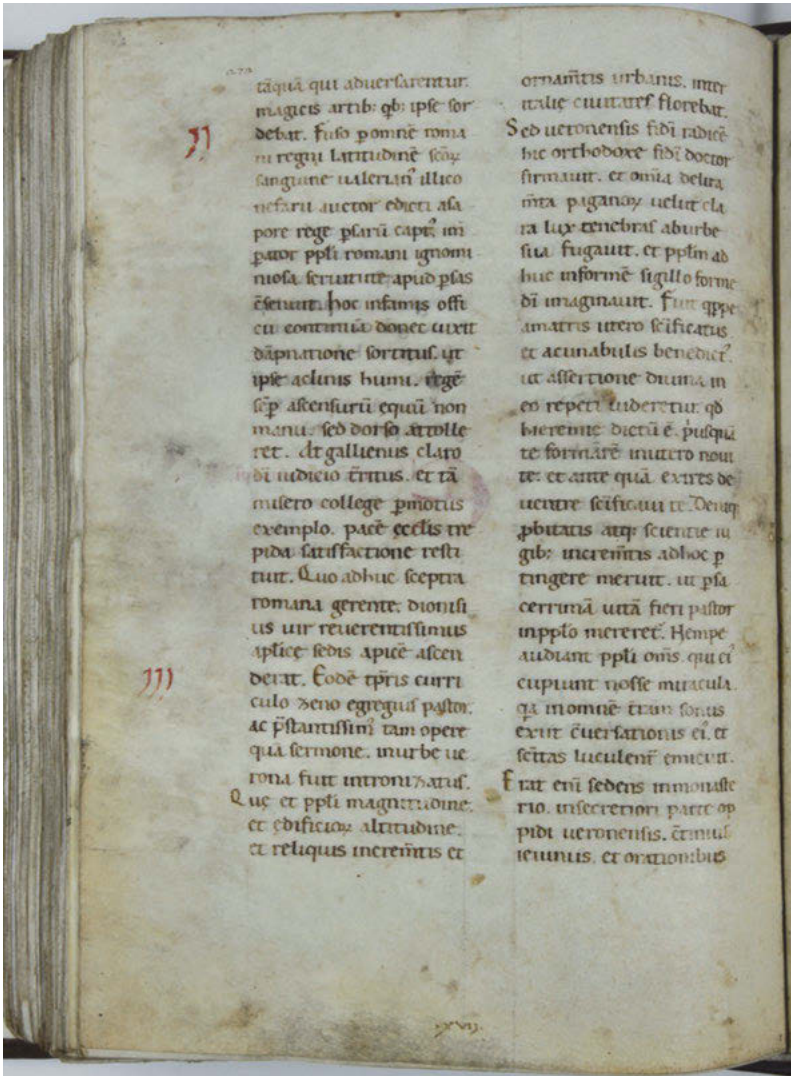 tāquā qui adversarentur.
magicis artib; qb; ipse sor
debat. Fuso ꝑ omnē roma
ni regni latitudinē scōꝝ
sanguine ualerian᷒ illico
nefarii auctor edicti asa
pore rege ꝑsarū capt᷒. im
ꝑator ppli romani ignomi
niosa seruitute apud ꝑsas
c̄senuit. hoc infamis offi
cii continuā donec uixit
dāpnatione sortitus. ut
ipse acliuis humi. regē
sēꝑ ascensurū equū non
manu. sed dorso attolle
ret. At gallienus claro
dī iudicio t̄ritus. et tā
misero college ꝑmotus
exemplo. pacē ęcclis tre
pida satisfactione resti
tuit. Quo adhuc sceptra
romana gerente. dionisi
us uir reuerentissimus
aplice sedis apicē ascen
derat. Eodē tp̄ris curri
culo zeno egregius pastor.
ac p̄stantissim᷒ tam opere
quā sermone. inurbe ue
rona fuit intronizatus.
Quę et ppli magnitudine.
et ędificioꝝ altitudine.
et reliquis increm̄tis et
II
III
ornam̄tis urbanis. inter
italie ciuitates florebat.
Sed ueronensis fidi radicē
hic orthodoxe fidi doctor
firmauit. et om̄ia delira
m̄ta paganoꝝ uelut cla
ra lux tenebras aburbe
sua fugauit. et pplm ad
huc informē sigillo forme
dī imaginauit. Fuit qꝑpe
amatris utero sc̄ificatus
et acunabulis benedict᷒.
ut assertione diuina in
eo repeti uideretur. qd
hieremie dictū ē. p̄usquā
te formarē inutero noui
te. et ante quā exires de
uentre sc̄ificaui te. Deniq;
ꝓbitatis atq; scientie iu
gib; increm̄tis adhoc ꝑ
tingere meruit. ut ꝑsa
cerrimā uitā fieri pastor
inpplo mereret᷒. Nempe
audiant ppli om̄s. qui ei᷒
cupiunt nosse miracula.
qa inomnē t̄ram sonus
exiit c̄uersationis ei᷒. et
sc̄itas luculent᷒ emicuit.
Erat eni sedens inmonaste
rio. insecretiori parte op
pidi ueronensis. c̄tinuis
ieiuniis. et orationibus
XVII